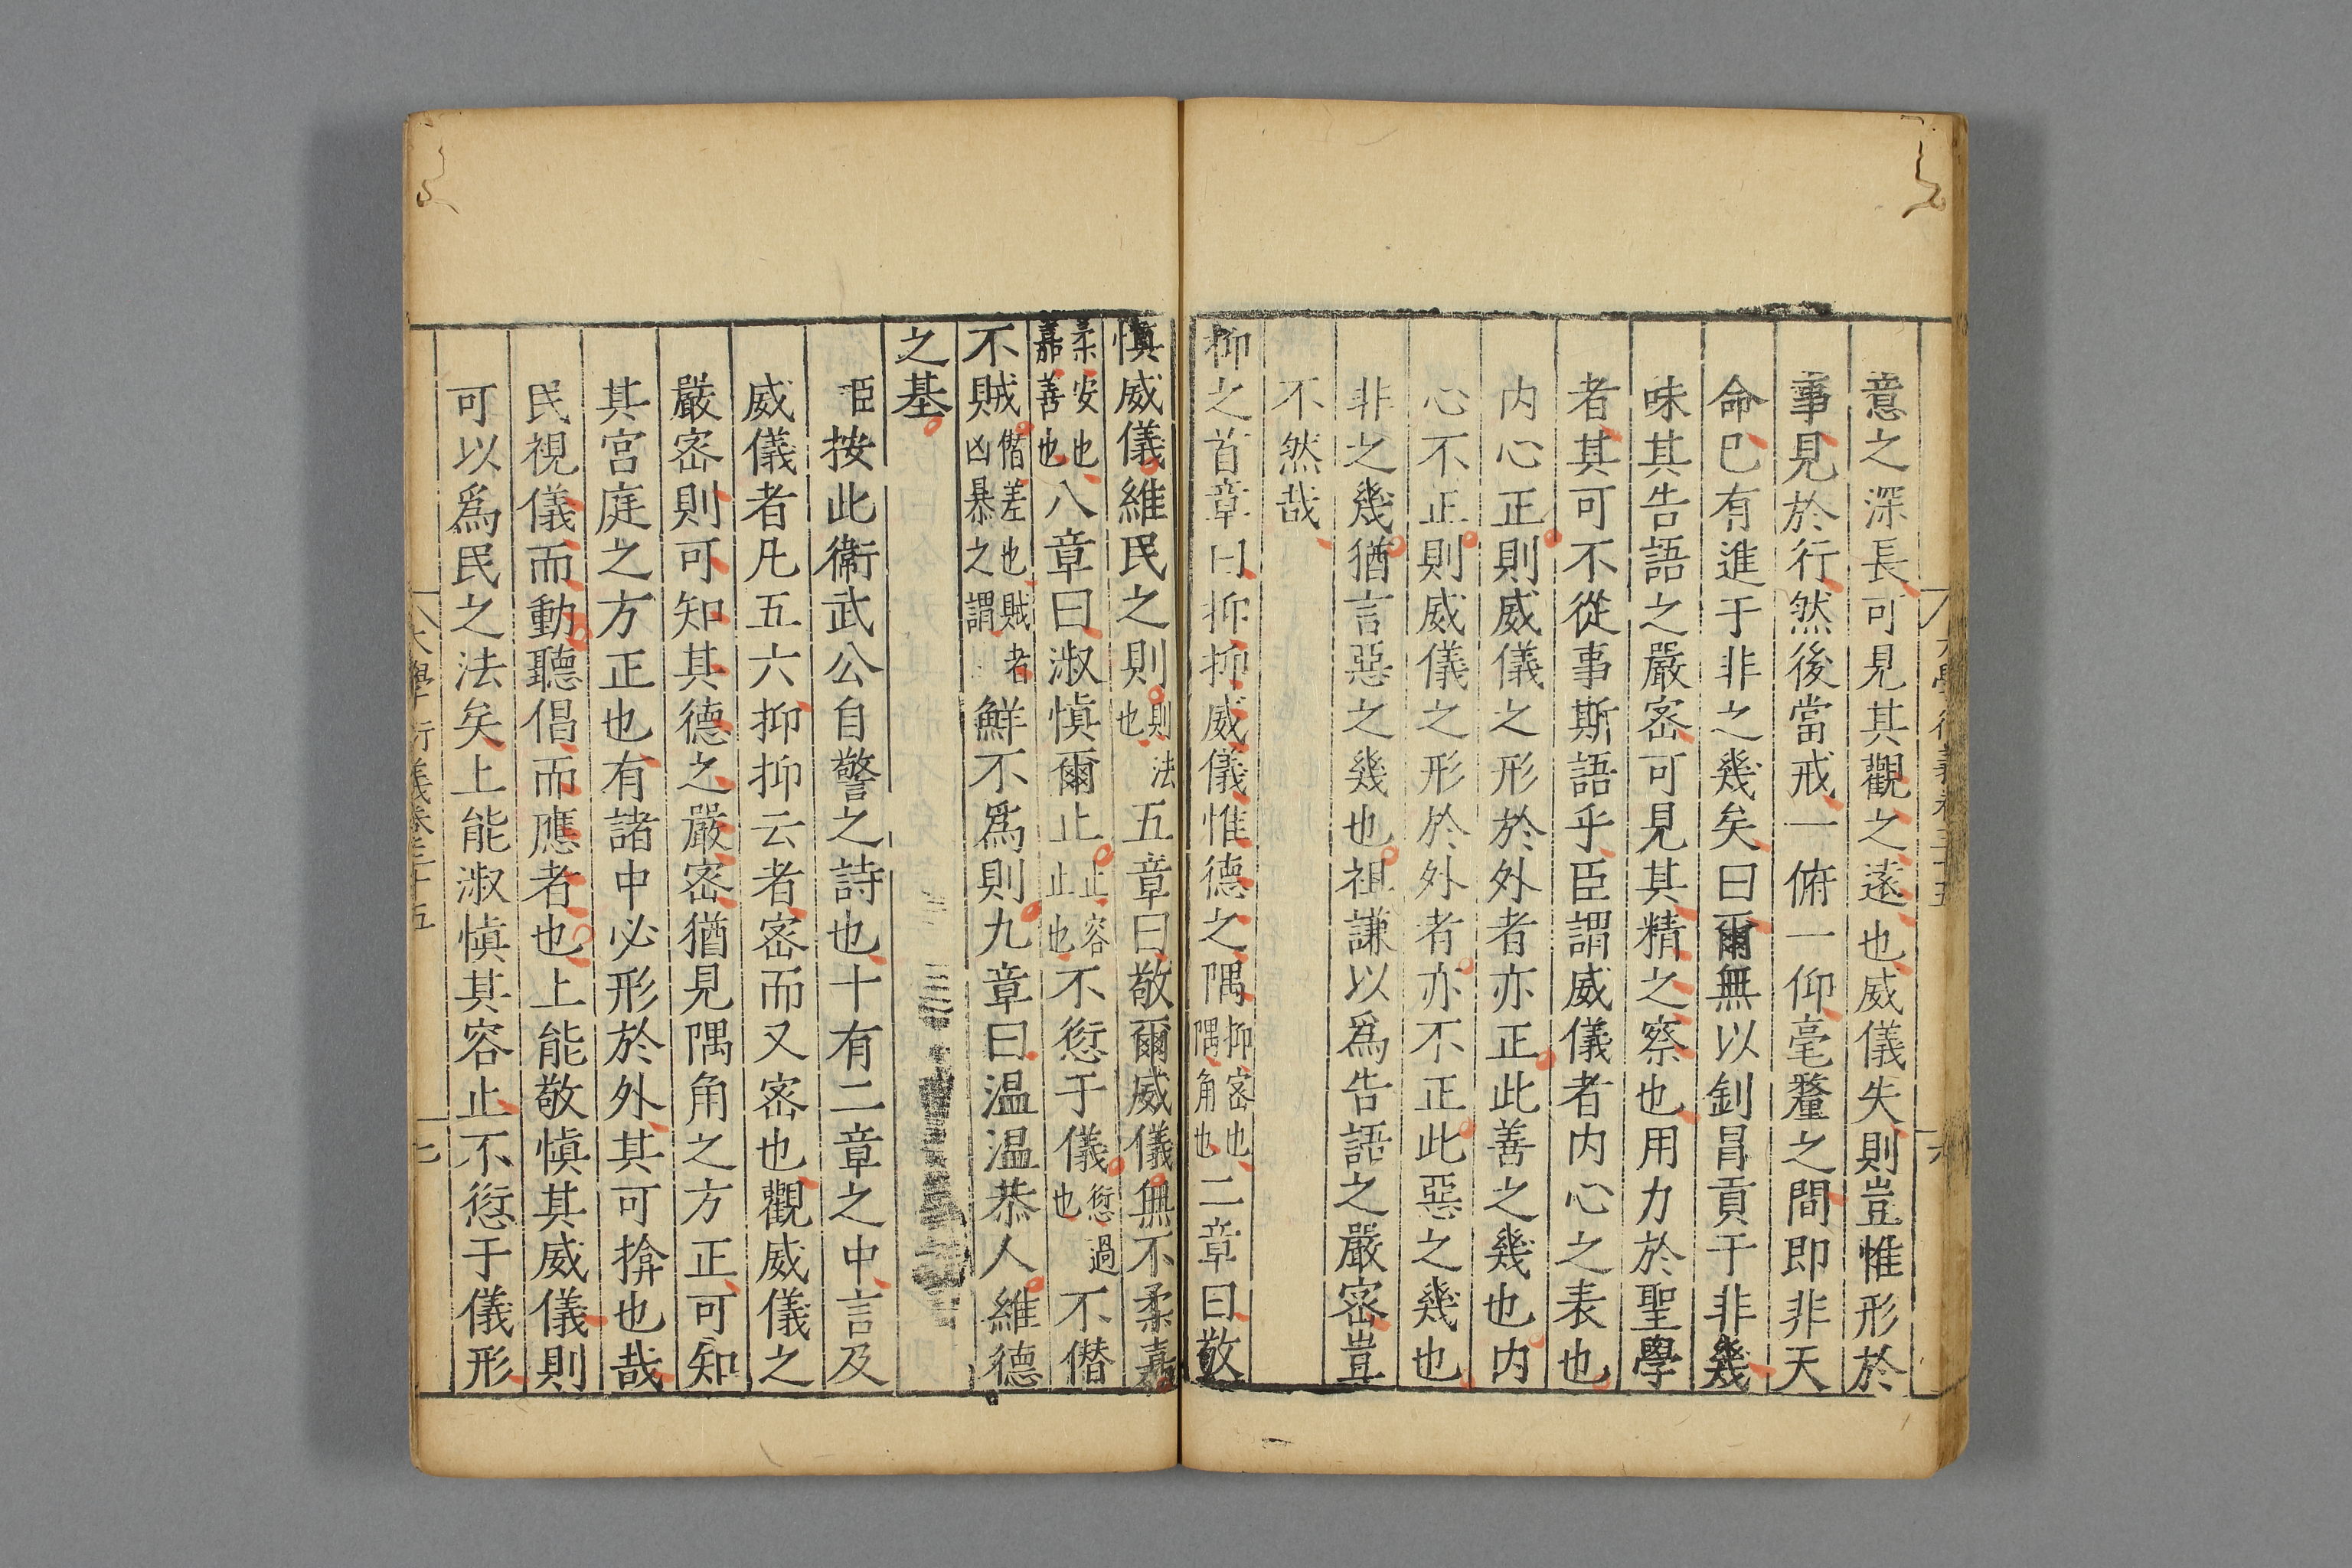 意之深長可見其觀之遠也威儀失則豈惟形於
事見於行然後當戒一俯一仰毫釐之間即非天
命巳有進于非之幾矣曰爾無以釗冐貢于非幾
味其告語之嚴宻可見其精之察也用力於聖學
者其可不從事斯語乎臣謂威儀者内心之表也
内心正則威儀之形於外者亦正此善之幾也内
心不正則威儀之形於外者亦不正此惡之幾也
非之幾猶言惡之幾也祖謙以爲告語之嚴宻豈
不然哉
抑之首章曰抑抑威儀惟德之隅抑宻也隅角也二章曰敬
慎威儀維民之則則法也五章曰敬爾威儀無不柔嘉
柔安也嘉善也八章曰淑慎爾止止容止也不愆于儀愆過也不僭
不賊僭差也賊者凶暴之謂鮮不爲則九章曰温温恭人維德
之基
臣按此衞武公自警之詩也十有二章之中言及
威儀者凡五六抑抑云者宻而又宻也觀威儀之
嚴宻則可知其德之嚴宻猶見隅角之方正可知
其宮庭之方正也有諸中必形於外其可揜也哉
民視儀而動聽倡而應者也上能敬慎其威儀則
可以爲民之法矣上能淑慎其容止不愆于儀形
大學衍義卷三十五
七